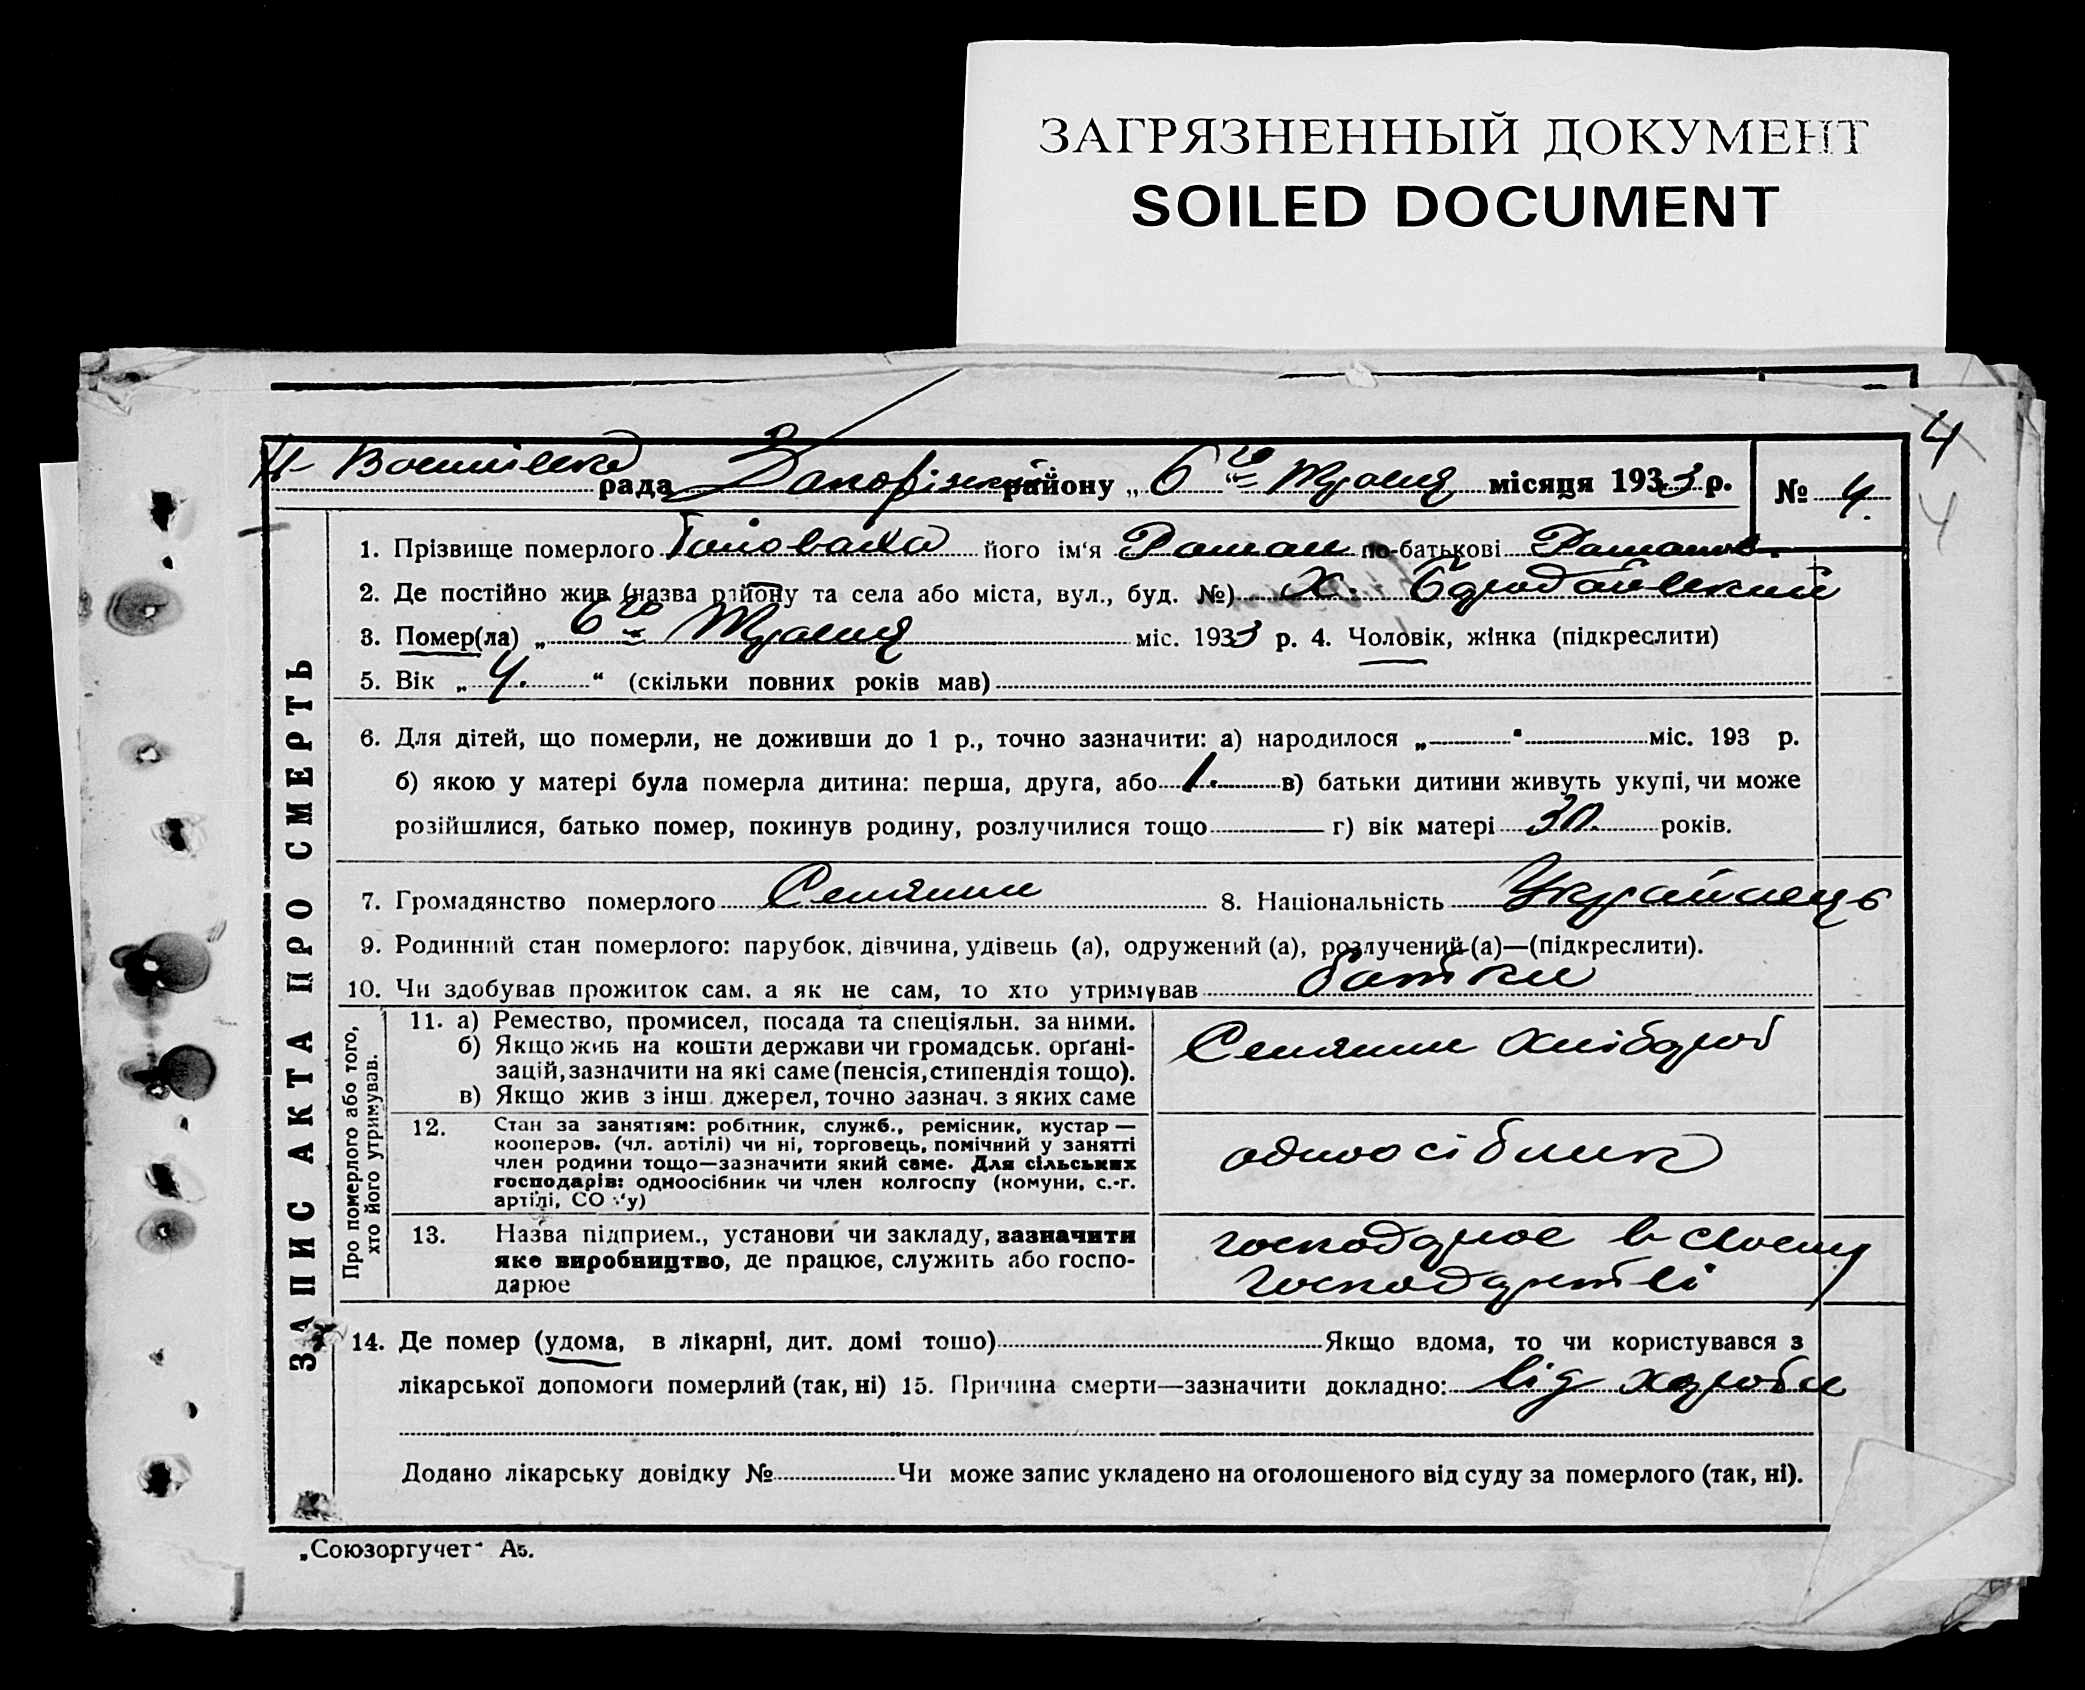 ЗАГРЯЗНЕННЫЙ ДОКУМЕНТ
SOILED DOCUMENT
4
рада Запорізький району „ 6го “ Травня місяця 1933 р. № 4.
4
ЗАПИС АКТА ПРО СМЕРТЬ
1. Прізвище померлого Головаха його ім‘я Роман по-батькові Романов.
2. Де постійно жив (назва району та села або міста, вул., буд. №) х.
3. Помер(ла) „ 6го Травня міс. 1933 р. 4. Чоловік, жінка (підкреслити)
5. Вік „ 4. “ (скільки повних років мав)
6. Для дітей, що померли, не доживши до 1 р., точно зазначити: а) народилося „ “ міс. 193 р.
б) якою у матері була померла дитина: перша, друга, або 1. в) батьки дитини живуть укупі, чи може
розійшлися, батько помер, покинув родину, розлучилися тощо г) вік матері 30. років.
7. Громадянство померлого Селянин 8. Національність Українець
9. Родинний стан померлого: парубок, дівчина, удівець (а), одружений (а), розлучений (а)—(підкреслити).
10. Чи здобував прожиток сам, а як не сам, то хто утримував батьки
Про померлого або того, хто його утримував.
11. а) Ремество, промисел, посада та спеціяльн. за ними.
б) Якщо жив на кошти держави чи громадськ. орґані-
зацій, зазначити на які саме (пенсія, стипендія тощо).
в) Якщо жив з інш. джерел, точно зазнач. з яких саме
Селянин хлібороб
12. Стан за занятіям: робітник, служб., ремісник, кустар —
кооперов. (чл. артілі) чи ні, торговець, помічний у занятті
член родини тощо—зазначити який саме. Для сільських
господарів: одноосібник чи член колгоспу (комуни, с.-г.
артілі, СО у)
одноосібник
13. Назва підприєм., установи чи закладу, зазначити
яке виробництво, де працює, служить або госпо-
дарює
господарює в своєму
господарстві
14. Де помер (удома, в лікарні, дит. домі тошо) Якщо вдома, то чи користувався з
лікарської допомоги померлий (так, ні) 15. Причина смерти—зазначити докладно: від хороби
Додано лікарську довідку № Чи може запис укладено на оголошеного від суду за померлого (так, ні).
„Союзоргучет“ А5.